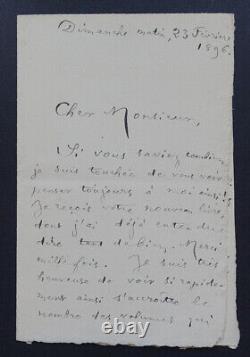 Dimanche matin, 23 Février
1896.
Cher Monsieur,
Si vous saviez combien
je suis touchée de vous voir
penser toujours à moi ainsi !
Je reçois votre nouveau livre,
dont j'ai déjà entendu
dire tant de bien. Merci
mille fois. Je suis très
heureuse de voir si rapide-
ment ainsi s'accroître le
nombre des volumes qui